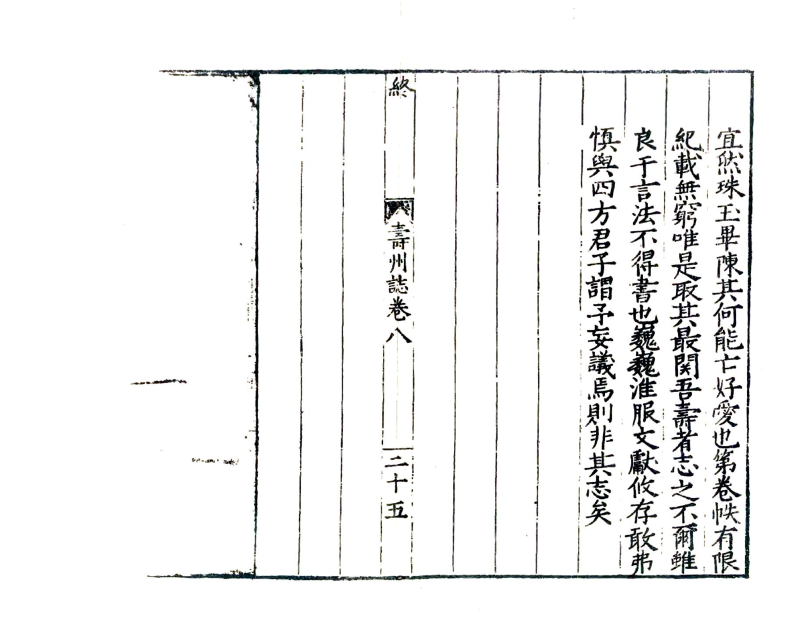 宜然珠玉畢陳其何能亡好愛也第卷帙有限
紀載無窮唯是取其最関吾壽者志之不爾雖
良于言法不得書也巍巍淮服文獻攸存敢弗
慎與四方君子謂予妄議焉則非其志矣
終
壽州誌卷八
二十五